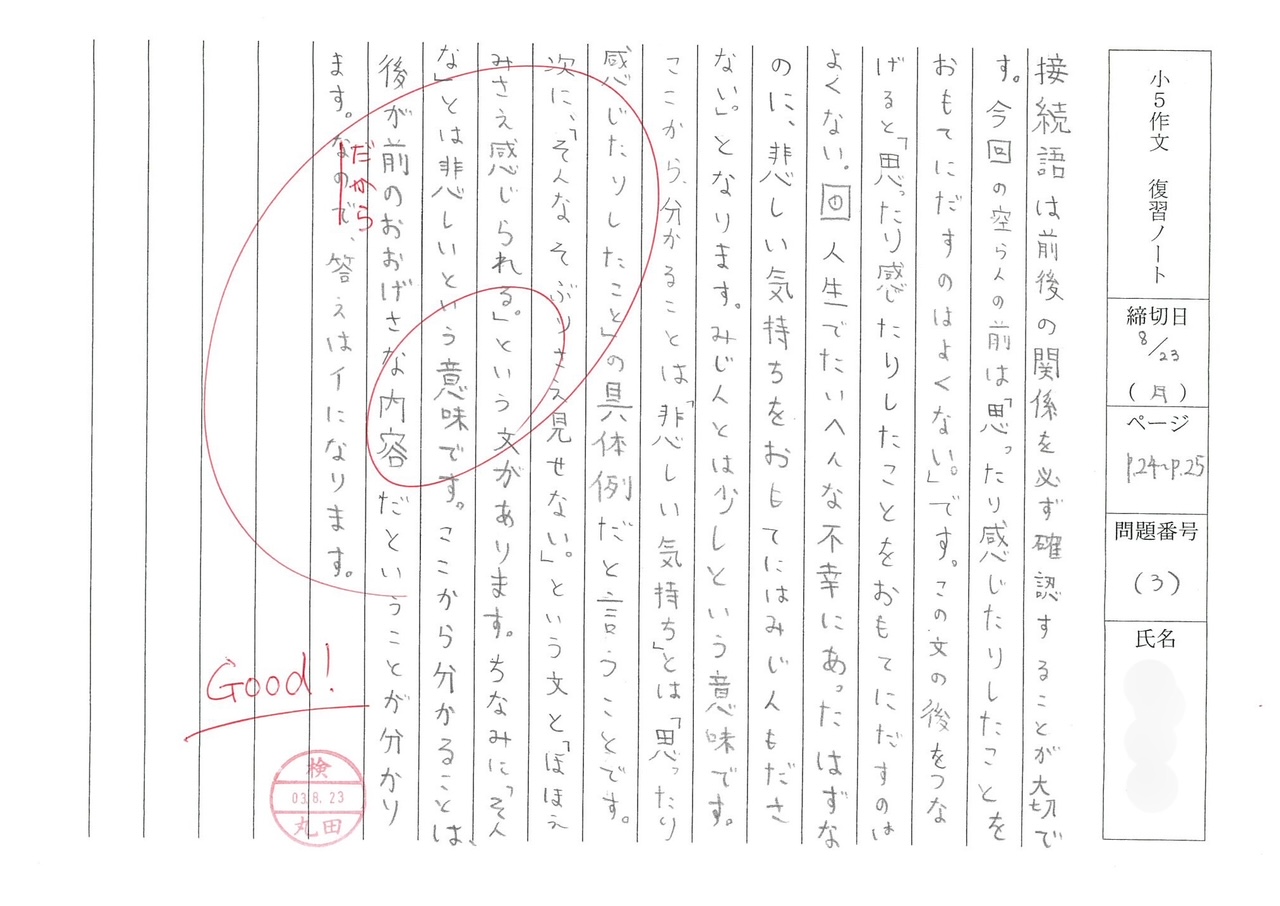 小5作文 復習ノート
締切日
8/23
(月)
ページ
P.24〜P.25
問題番号
(3)
氏名
接続語は前後の関係を必ず確認することが大切で
す。今回の空らんの前は「思ったり感じたりしたことを
おもてにだすのはよくない。」です。この文の後をつな
げると「思ったり感じたりしたことをおもてにだすのは
よくない。回人生でたいへんな不幸にあったはずな
のに、悲しい気持ちをおもてにはみじんもださ
ない。」となります。みじんとは少しという意味です。
ここから、分かることは「悲しい気持ち」とは「思ったり
感じたりしたこと」の具体例だと言うことです。
次に、「そんなそぶりさえ見せない。」という文と「ほほえ
みさえ感じられる。」という文があります。ちなみに「そん
な」とは悲しいという意味です。ここから分かることは、
後が前のおおげさな内容だということが分かり
ます。なので、答えはイになります。
だから
Good!
検
03.8.23
丸田